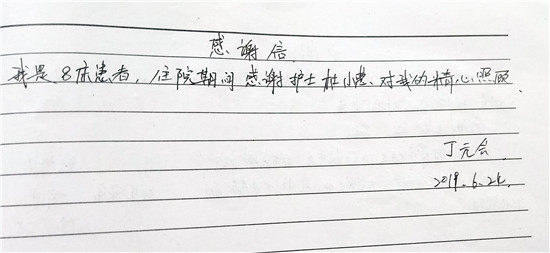 感谢信
我是8床患者,住院期间感谢护士杜小慧对我的精心照顾.
丁元会
2019.6.24.